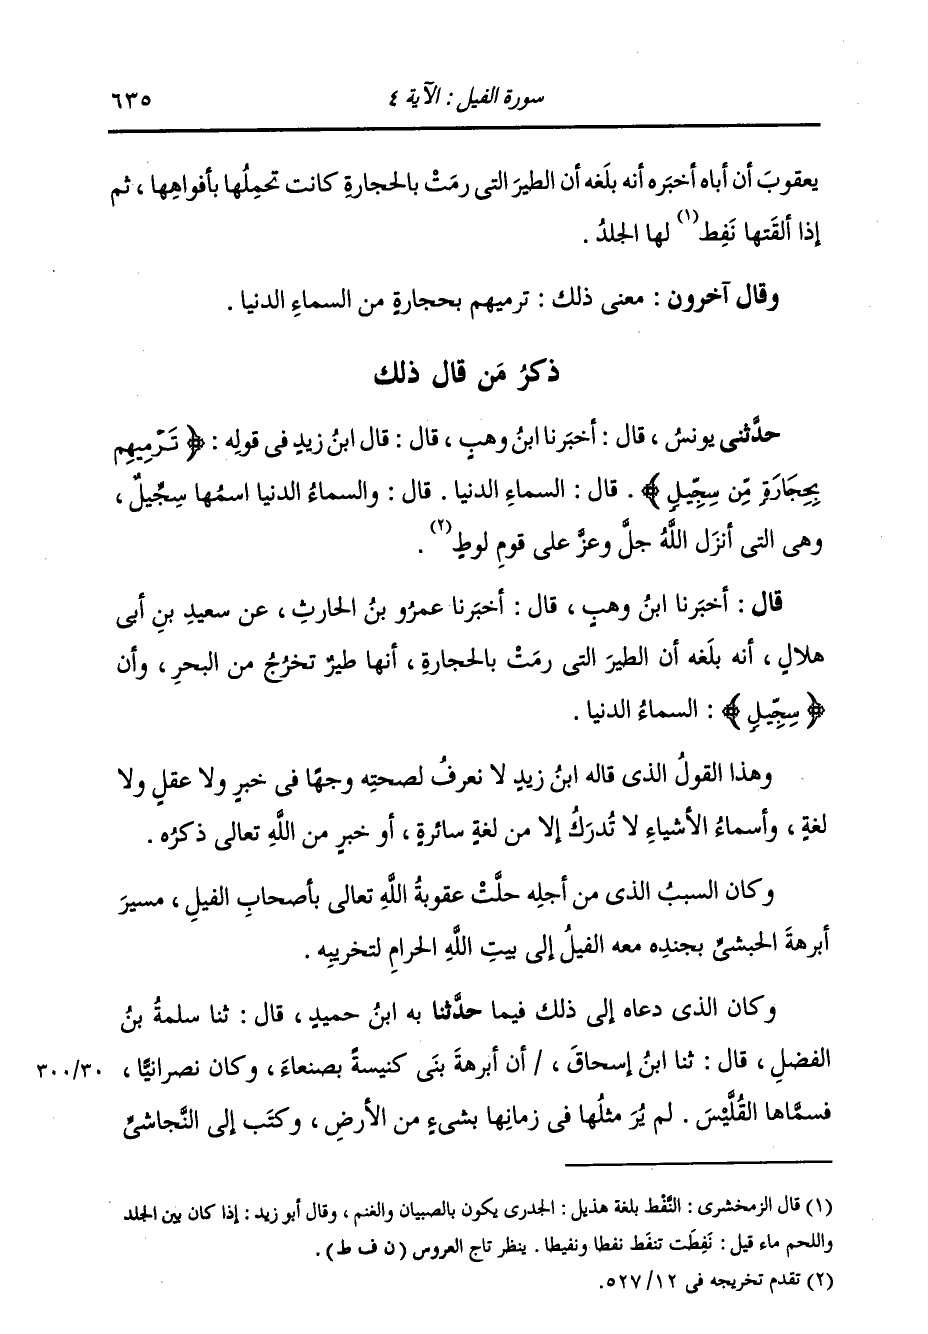 سورة الفيل : الآية ٤ ٦٣٥
يعقوبَ أن أباه أخبَره أنه بلَغه أن الطيرَ التى رمَتْ بالحجارةِ كانت تحمِلُها بأفواهِها ، ثم
إذا ألقَتها نَفِط(١) لها الجلدُ .
وقال آخرون : معنى ذلك : ترميهم بحجارةٍ من السماءِ الدنيا .
ذكرُ مَن قال ذلك
حدَّثنى يونسُ ، قال : أخبَرنا ابنُ وهبٍ ، قال : قال ابنُ زيدٍ فى قولِه : ﴿ تَرْمِيهِم
بِحِجَارَةٍ مِّن سِجِّيلٍ ﴾ . قال : السماءِ الدنيا . قال : والسماءُ الدنيا اسمُها سِجِّيلٌ ،
وهى التى أنزَل اللَّهُ جلَّ وعزَّ على قومِ لوطٍ(٢) .
قال : أخبَرنا ابنُ وهبٍ ، قال : أخبَرنا عمرُو بنُ الحارثِ ، عن سعيدِ بنِ أبى
هلالٍ ، أنه بلَغه أن الطيرَ التى رمَتْ بالحجارةِ ، أنها طيرٌ تخرُجُ من البحرِ ، وأن
﴿ سِجِّيلٍ ﴾ : السماءُ الدنيا .
وهذا القولُ الذى قاله ابنُ زيدٍ لا نعرفُ لصحتِه وجهًا فى خبرٍ ولا عقلٍ ولا
لغةٍ ، وأسماءُ الأشياءِ لا تُدرَكُ إلا من لغةٍ سائرةٍ ، أو خبرٍ من اللَّهِ تعالى ذكرُه .
وكان السببُ الذى من أجلِه حلَّتْ عقوبةُ اللَّهِ تعالى بأصحابِ الفيلِ ، مسيرَ
أبرهةَ الحبشىِّ بجندِه معه الفيلُ إلى بيتِ اللَّهِ الحرامِ لتخريبِه .
وكان الذى دعاه إلى ذلك فيما حدَّثنا به ابنُ حميدٍ ، قال : ثنا سلمةُ بنُ
الفضلِ ، قال : ثنا ابنُ إسحاقَ ، / أن أبرهةَ بنَى كنيسةً بصنعاءَ ، وكان نصرانيًّا ، ٣٠٠/٣٠
فسمَّاها القُلَّيْسَ . لم يُرَ مثلُها فى زمانِها بشىءٍ من الأرضِ ، وكتَب إلى النَّجاشىِّ
(١) قال الزمخشرى : النَّفْط بلغة هذيل : الجدرى يكون بالصبيان والغنم ، وقال أبو زيد : إذا كان بين الجلد
واللحم ماء قيل : نَفِطَت تنفَط نفطا ونفيطا . ينظر تاج العروس (ن ف ط) .
(٢) تقدم تخريجه فى ٥٢٧/١٢.